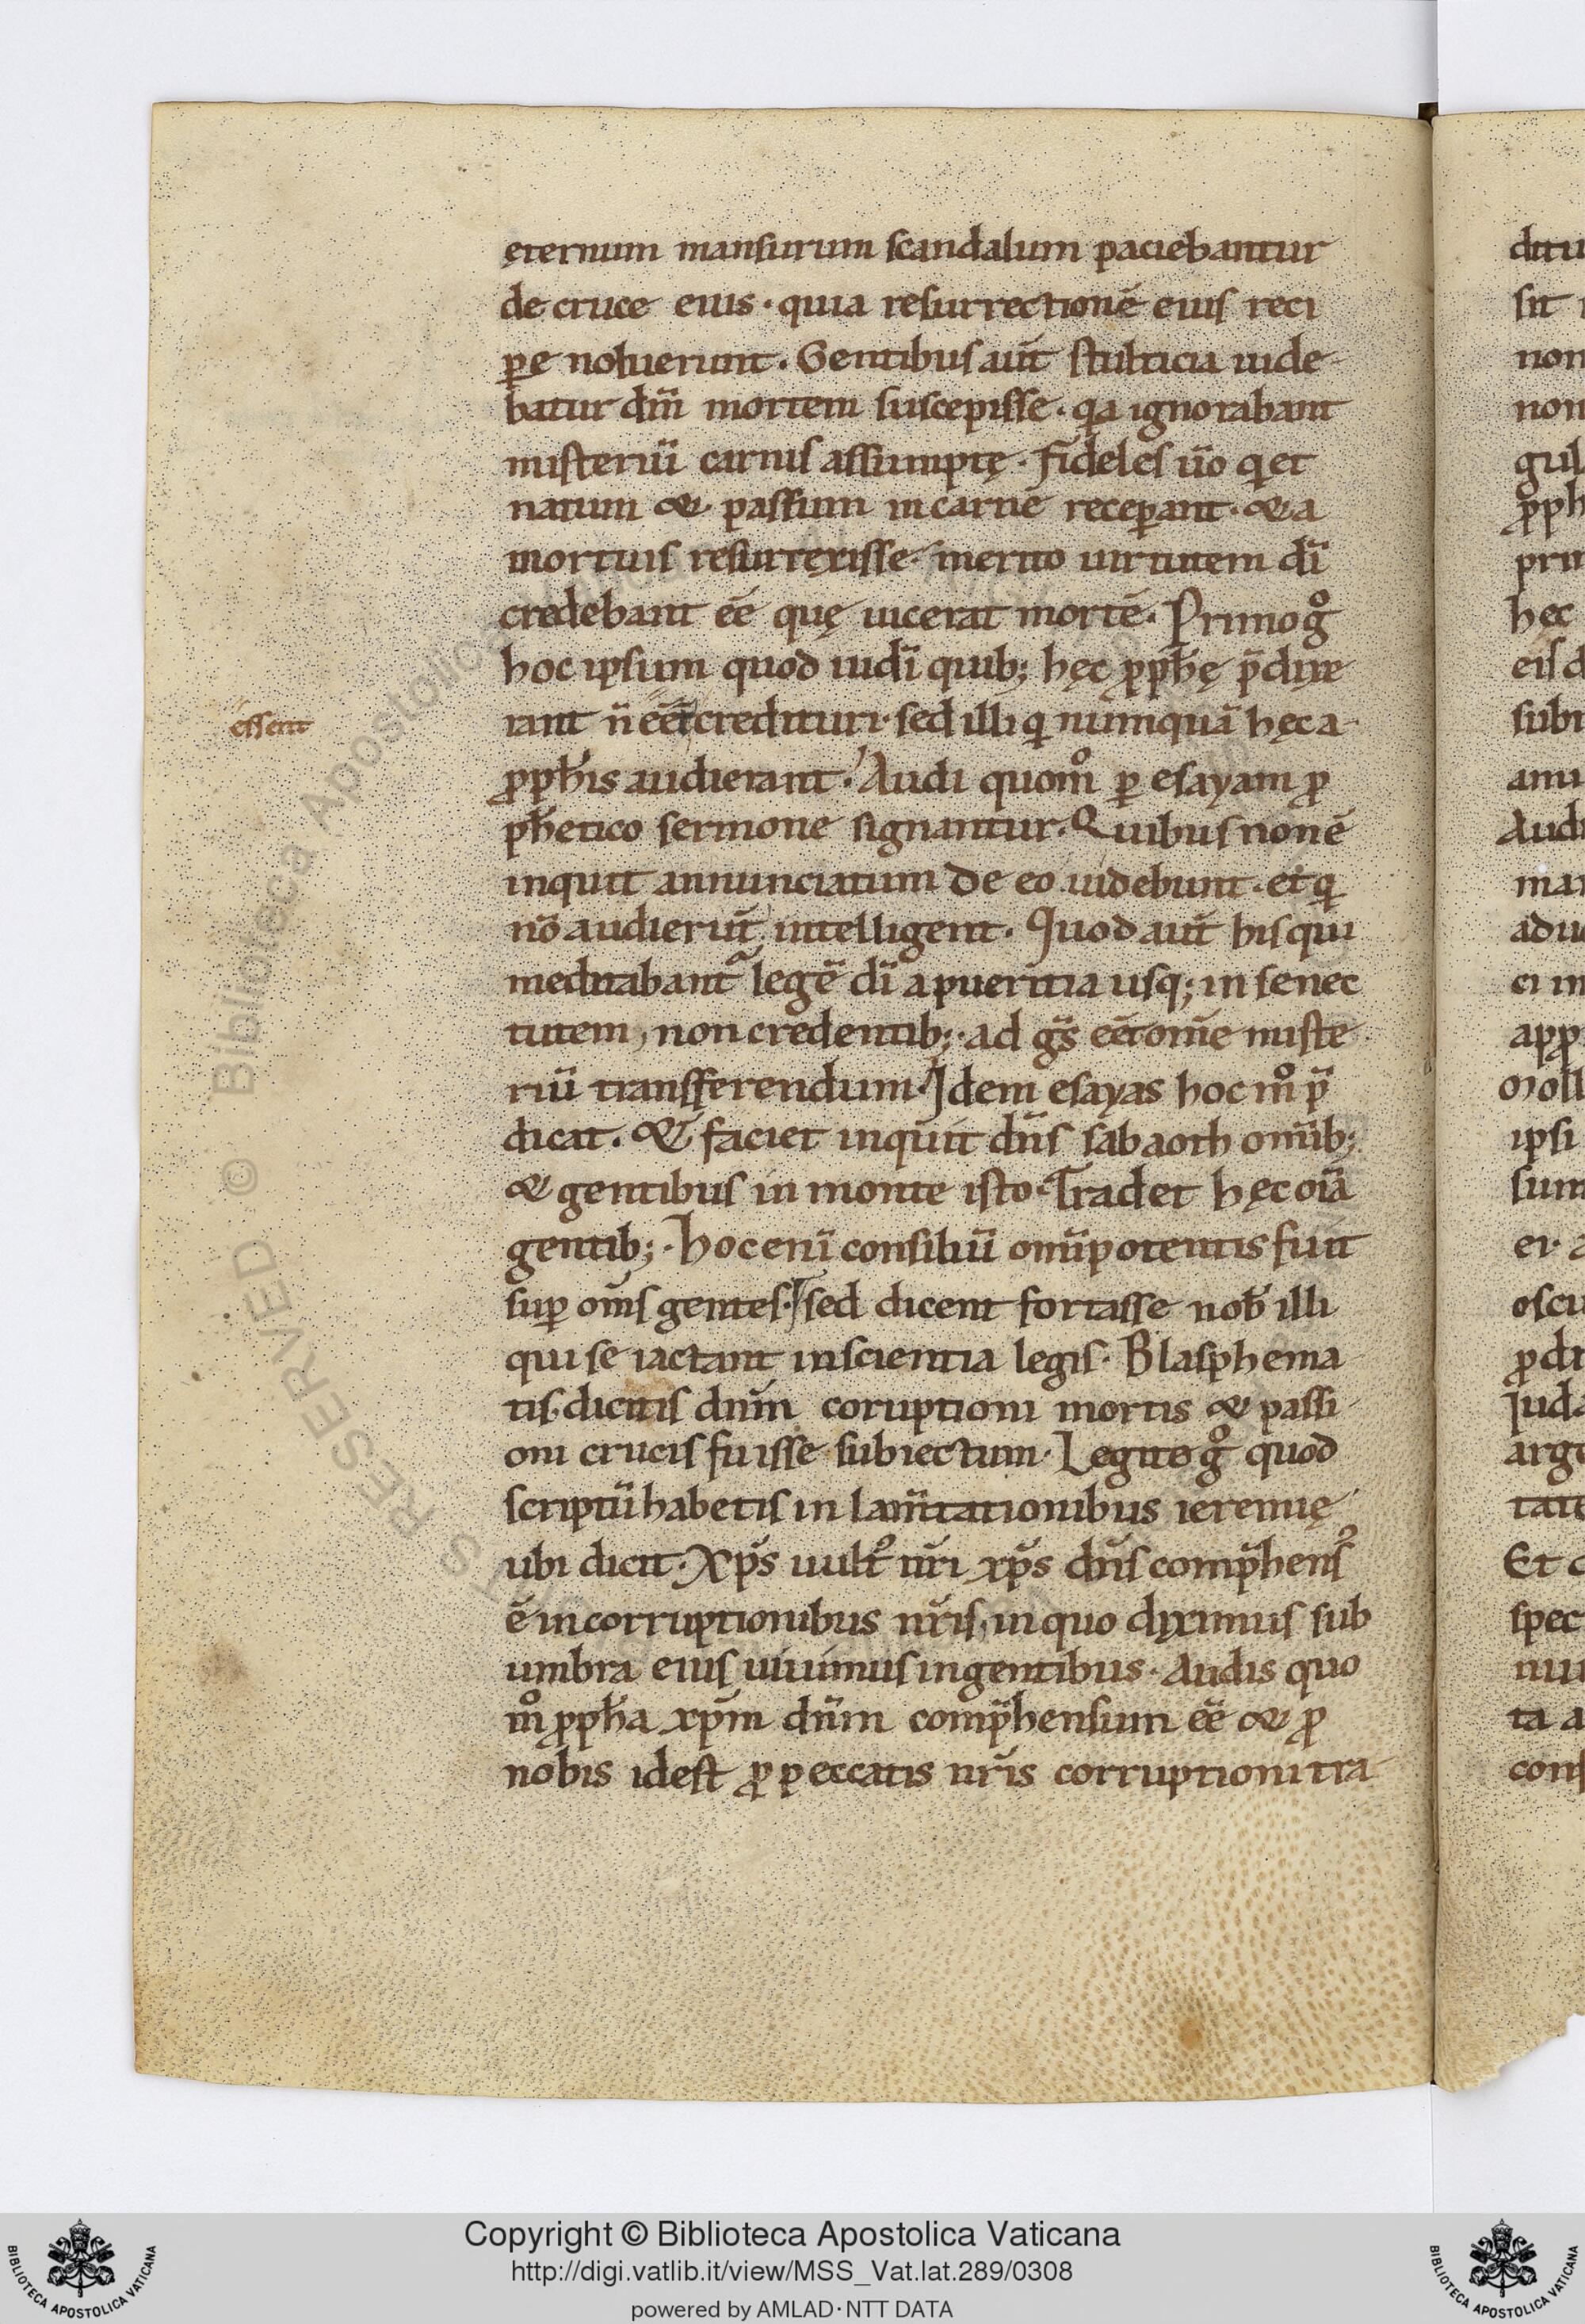 ęternum mansurum scandalum paciebantur
de cruce eius · quia resurrectionē eius reci
ꝑe noluerunt . Gentibus aut̄ stulticia uide-
batur dm̄ mortem suscepisse · qa ignorabant
misteriū carnis assumptę · Fideles ūo qi et
natum & passum in carne receꝑant · & a
mortuis resurręxisse · merito uirtutem dī
credebant eē quę uicerat mortē · Primo gͦ
hoc ipsum quod iudī quib; hęc ꝓph̄ę p̄dixe
rant n̄ eēt credituri · sed illi qi numquā hęc a-
essent
ꝓph̄is audierant . Audi quom̊ ꝑ esayam ꝓ
ph̄etico sermone signantur . Quibus non ē
inquit annunciatum de eo uidebunt · et qi
nō audierūt intelligent . Quod aut̄ his qui
meditabant᷑ legē dī a pueritia usq; in senec
tutem, non credentib; · ad gs̄ eēt om̄e miste
riū transferendum · Idem esayas hoc m̊ p̄
dicat . & faciet inquit dn̄s sabaoth om̄ib;
& gentibus in monte isto · Tradet hęc oīa
gentib; · hoc enī consiliū om̄ipotentis fuit
suꝑ om̄s gentes · sed dicent fortasse nob̄ illi
qui se iactant in scientia legis · Blasphema
tis · dicitis dnm̄ coruptioni mortis & passi
oni crucis fuisse subiectum · Legito gͦ quod
scriptū habetis in lam̄tationibus ieremię
ubi dicit · Xp̄s uult᷒ nr̄i xp̄s dn̄s comp̄hens᷒
ē in corruptionibus nr̄is · in quo diximus sub
umbra eius uiuimus in gentibus · Audis quo
m̊ ꝓph̄a xp̄m dn̄m comp̄hensum eē & ꝓ
nobis id est ꝓ peccatis nr̄is corruptioni tra-
Copyright © Biblioteca Apostolica Vaticana
http://digi.vatlib.it/view/MSS_Vat.lat.289/0308
powered by AMLAD·NTT DATA
BIBLIOTECA APOSTOLICA VATICANA
BIBLIOTECA APOSTOLICA VATICANA